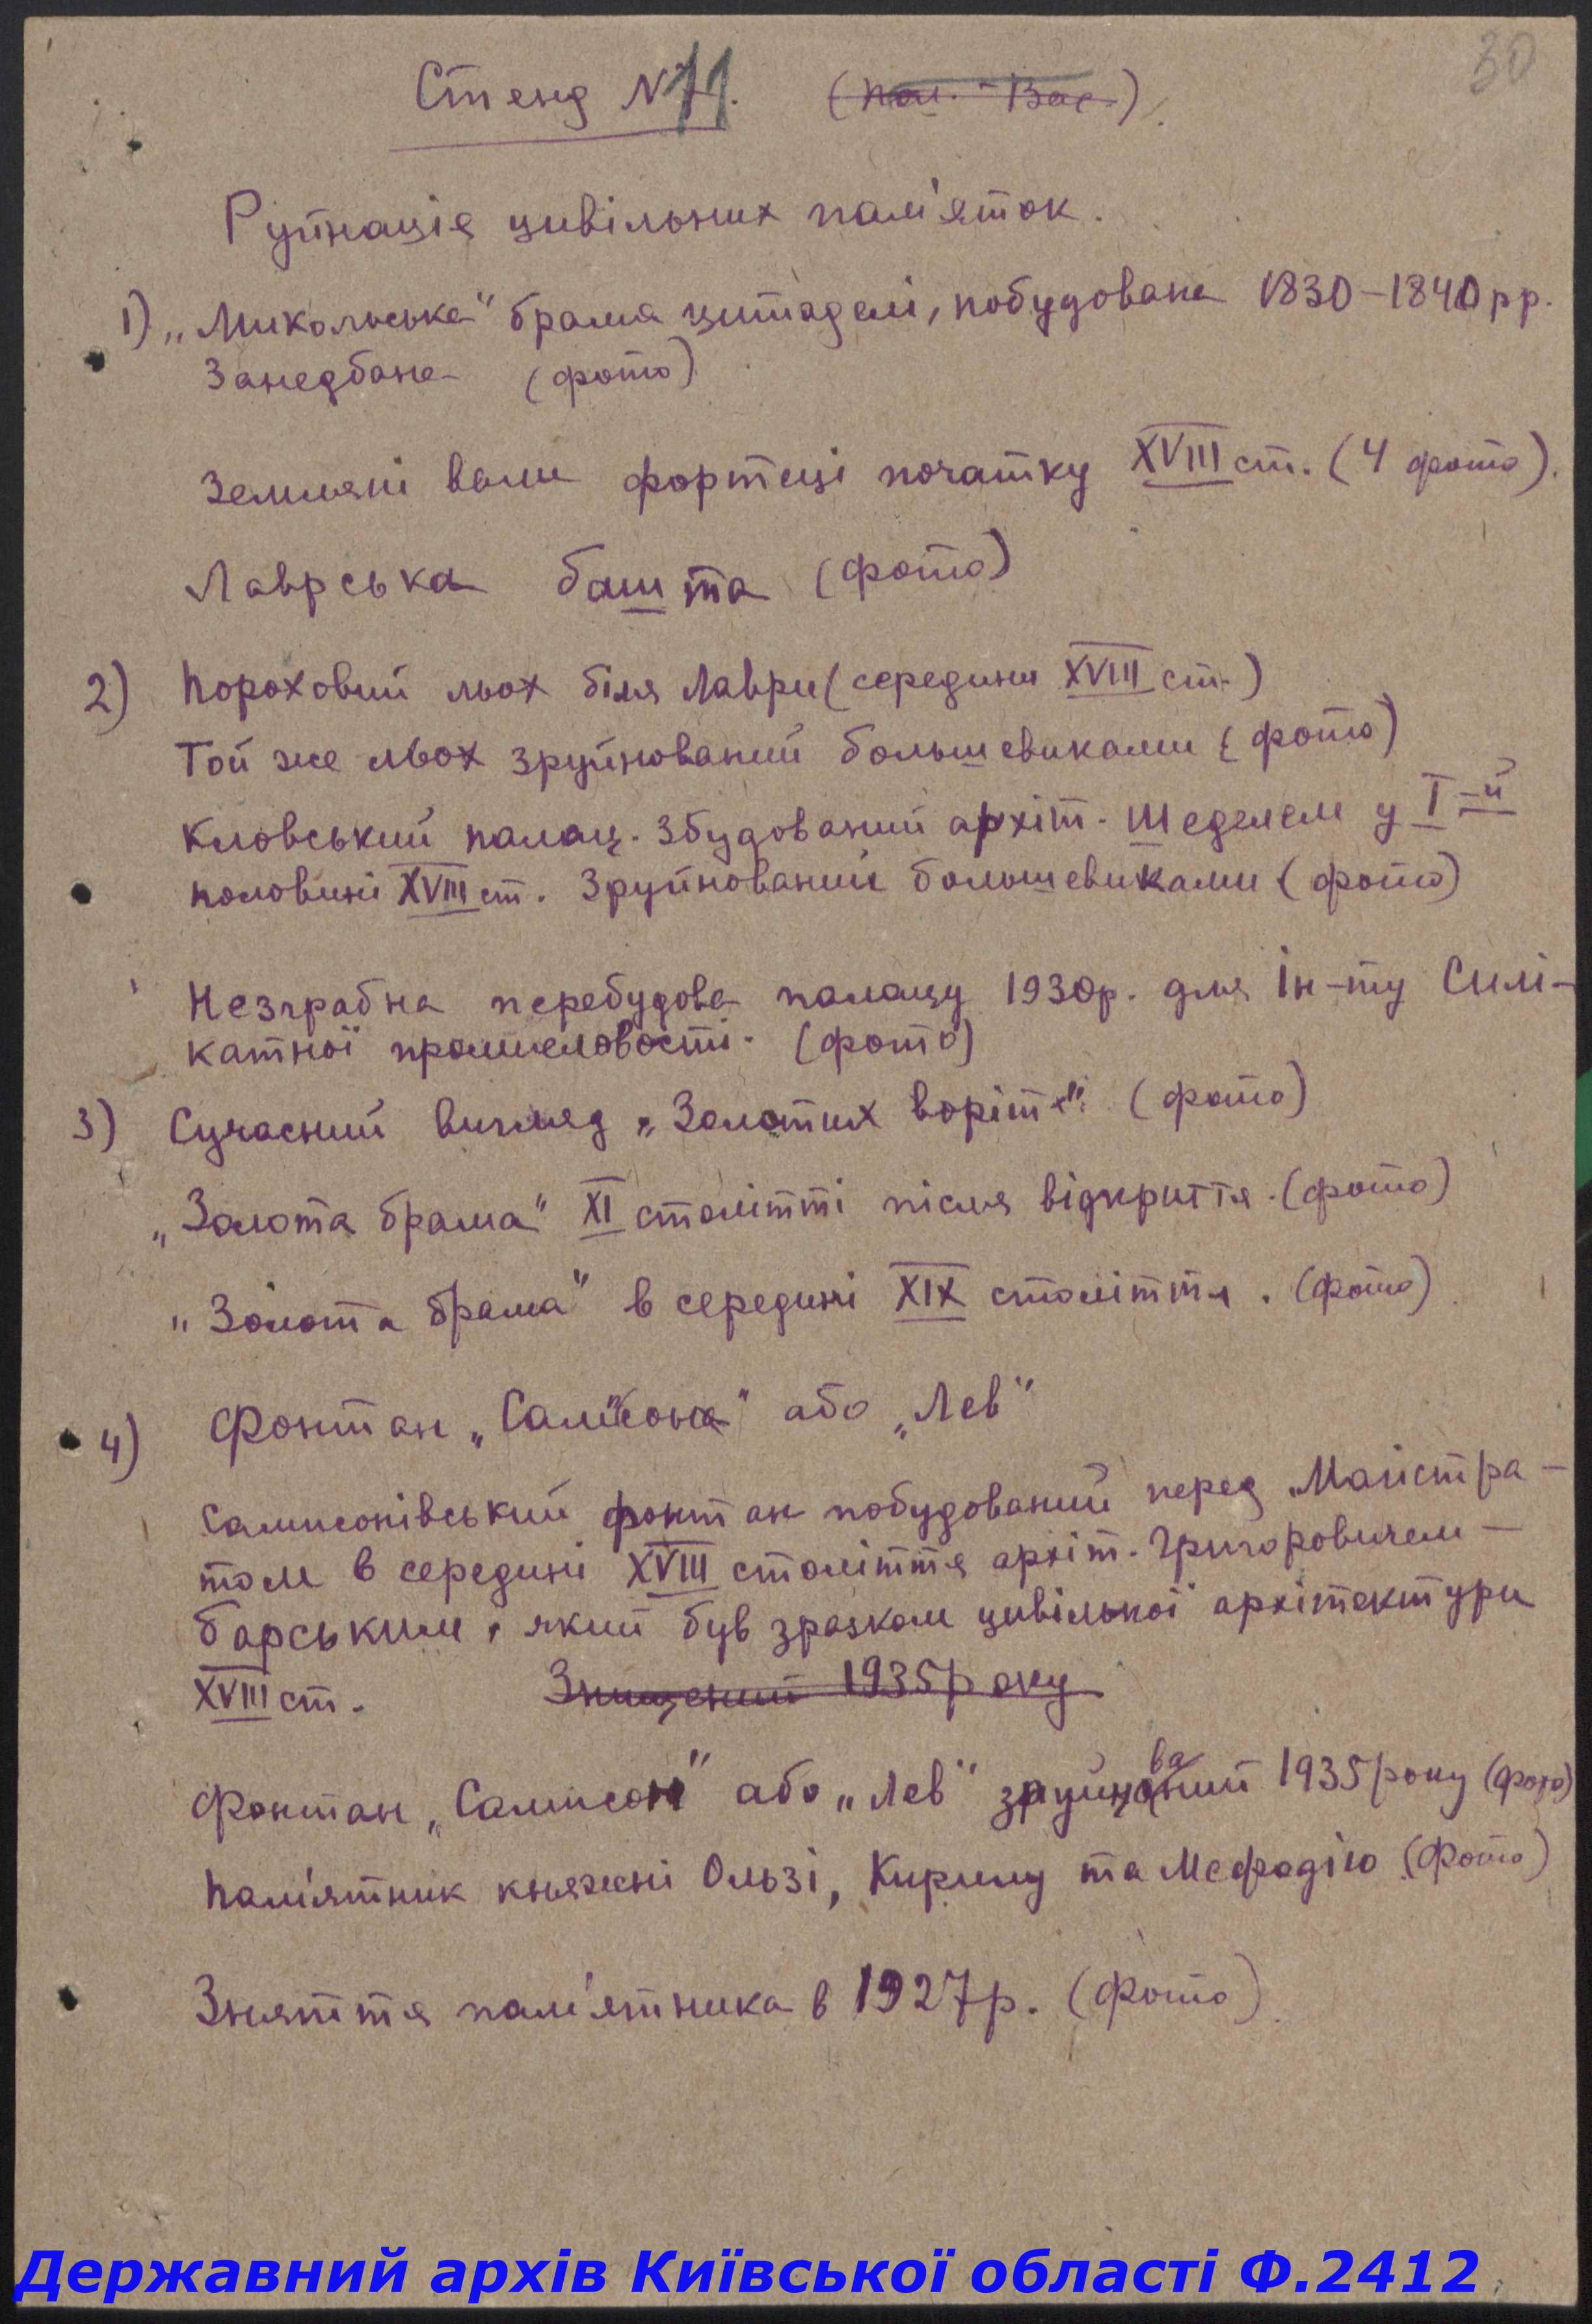 30
Стенд N 11.
Руйнація цивільних пам'яток.
1) „Микольська" брама цитаделі, побудована 1830-1840 рр.
Занедбана (фото)
Земляні вали фортеці початку XVIII ст. (4 фото).
Лаврська башта (фото)
2) Пороховий льох біля Лаври (середини XVIII ст.)
Той же льох зруйнований большевиками (фото)
Кловський палац. Збудований архіт. Шеделем у I-й
половині XVIII ст. Зруйнований большевиками (фото)
Незграбна перебудова палацу 1930р. для Ін-ту Силі-
катної промисловості. (фото)
3) Сучасний вигляд „Золотих воріт". (фото)
„Золота брама" XI столітті після відкриття. (фото)
„Золота брама" в середині XIX століття. (фото)
4) Фонтан „Самсона" або „Лев"
Сампсонівський фонтан побудований перед Магістра-
том в середині XVIII століття архіт. Григоровичем-
Барським, який був зразком цивільної архітектури
XVIII ст. Знищений 1935 року
Фонтан „Сампсон" або „Лев" зруйнований 1935 року (фото)
Пам'ятник княгині Ользі, Кирилу та Мефодію (фото)
Зняття пам'ятника в 1927р. (фото)
Державний архів Київської області Ф.2412